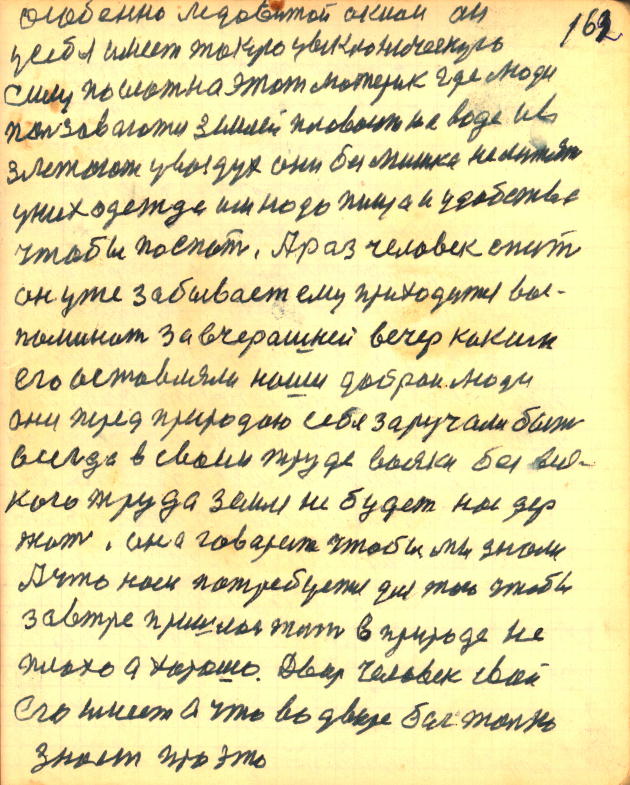 162
особенно ледовитой океан он
у себя имеет такую цыклоническую
силу послать на этот материк где люди
пользоваются землей пловають на воде и в
злетають у воздух они без мишка не летять
у них одежда им надо пища и удобства
чтобы поспать. А раз человек спить
он уже забывает ему приходится вос-
поминать за вчерашней вечер каким
его оставляли наши добраи люди
они перед природаю себя заручали быть
всегда в своем труде всяки без вся-
кого труда земля не будет нас дер
жать. она говарить чтобы мы знали
А что нам потребуется для того чтобы
завтре пришлось жить в природе не
плохо а хорошо. Двор человек свой
его имеет А что во дворе бог только
знает про это